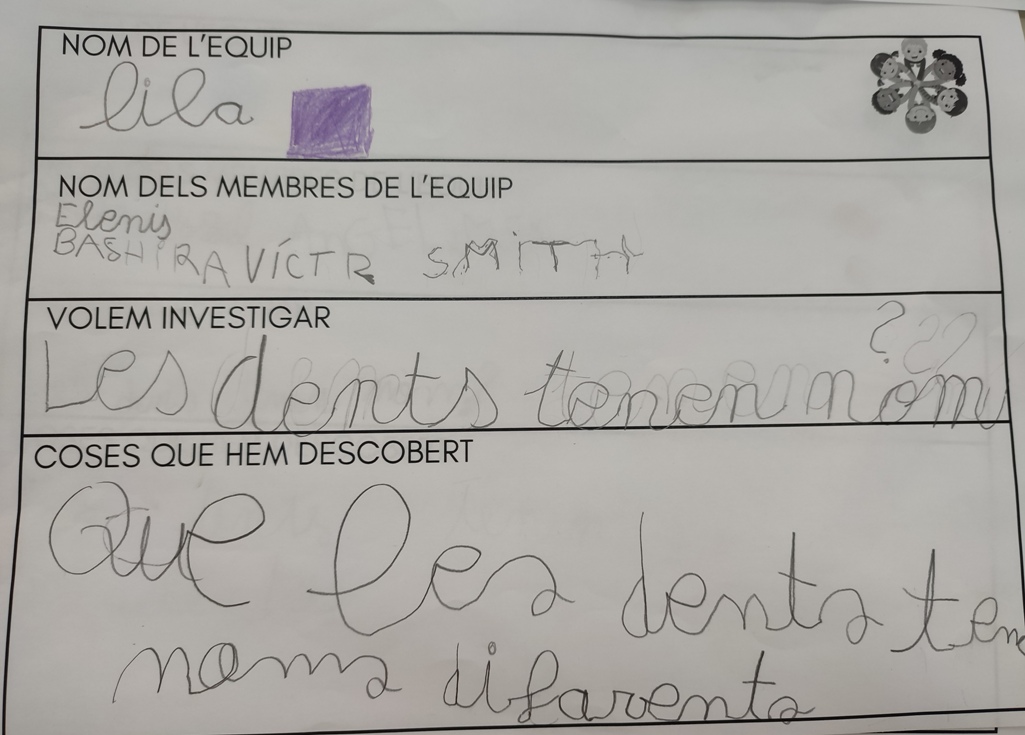 NOM DE L'EQUIP
lila
NOM DELS MEMBRES DE L'EQUIP
Elenis
BASHIRA VÍCTR SMITH
VOLEM INVESTIGAR
Les dents tenen nom?
COSES QUE HEM DESCOBERT
Que les dents ten
noms difarents